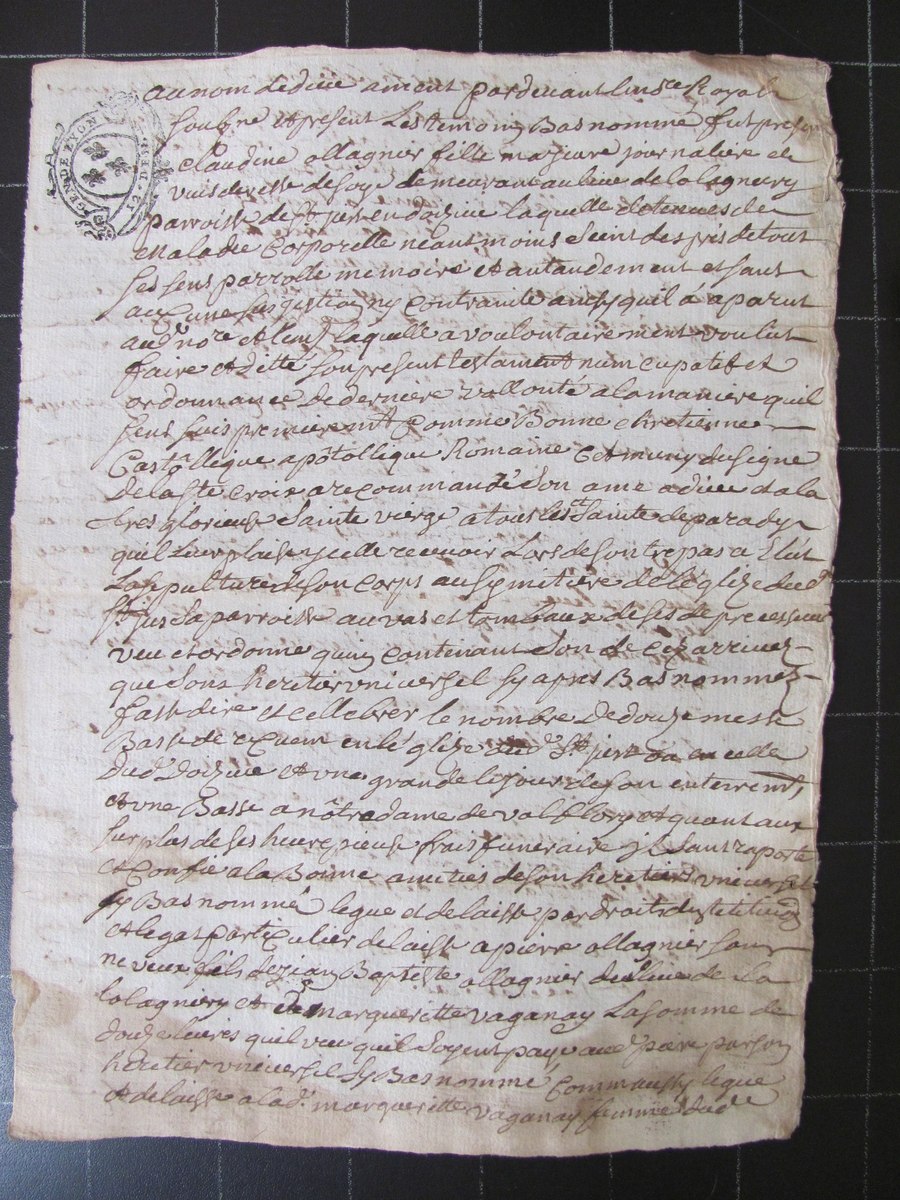 GEND DE LYON
au nom de dieu ament par devant le no.re Royal
soubne et present les temoins Bas nommé fut presen
claudine ollagnier fille majeure journaliere et
de soye demeurant au lieu de lolagniery
parroisse de st just en doizieu laquelle detenues de
maladie corporelle neant moins seint despris de tout
ses sens parrolle memoire et antandement et sant
aucune ny contrainte ainsy quil a aparut
aud no.re et tem laquelle a voulontairement voulut
faire et ditté son present testament nuncupatif et
ordonnance de derniere vollonté a la maniere quil
sens suis premierem.t comme Bonne chretienne
Catollique apôtollique Romaine et muny du signe
de la ste croix a recommandé son ame a dieu et a la
tres glorieuse Sainte vierge a tous les Sainte de paradys
quil leur plaise ycelle recevoir lors de son trepas a Elut
la sepulture de son corps au Symitiere de l'églize dud
st just sa parroisse au vas et tombaux de ses depredecesseur
veu et ordonne quin contenant son de cez arrivez
que sont heretier universel sy apres Bas nommez
fasse dire et cellebrer le nombre de douze messe
Basse de requem en l'églize dud st just ou en celle
dud doizieu et une grande le jour de son enterremt,
et une Basse a nôtre dame de valfleury et quant aux
surplus de ses heuvre pieux frais funeraire il sant raporte
et confie a la Bonne amities de son heretier universel
sy Bas nommé legue et delaisse par droit dinstitution
et legat particulier delaisse a piere ollagnier son
neveux fils de jean Baptiste ollagnier du lieu de la
lolagniery et de margueritte vaganay la somme de
douze livres quil veu quil soyent paye aud piere par son
heretier universel sy Bas nommé, comme aussy legue
et delaisse a lad. margueritte vaganay femme dud